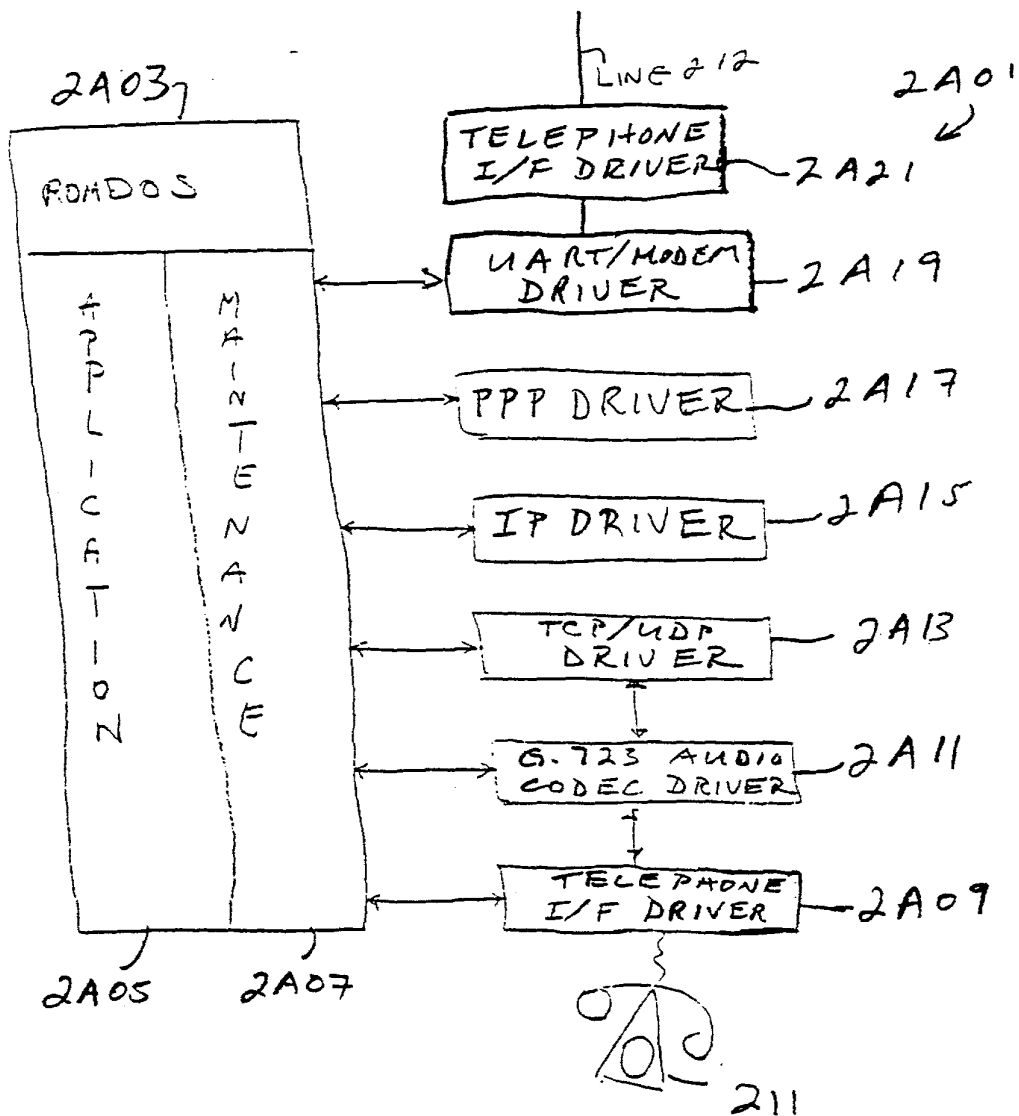 LINE 212
2A01
2A03
TELEPHONE
I/F DRIVER
2A21
ROMDOS
UART/MODEM
DRIVER
2A19
APPLICATION
MAINTENANCE
PPP DRIVER
2A17
IP DRIVER
2A15
TCP/UDP
DRIVER
2A13
G.723 AUDIO
CODEC DRIVER
2A11
TELEPHONE
I/F DRIVER
2A09
2A05
2A07
211